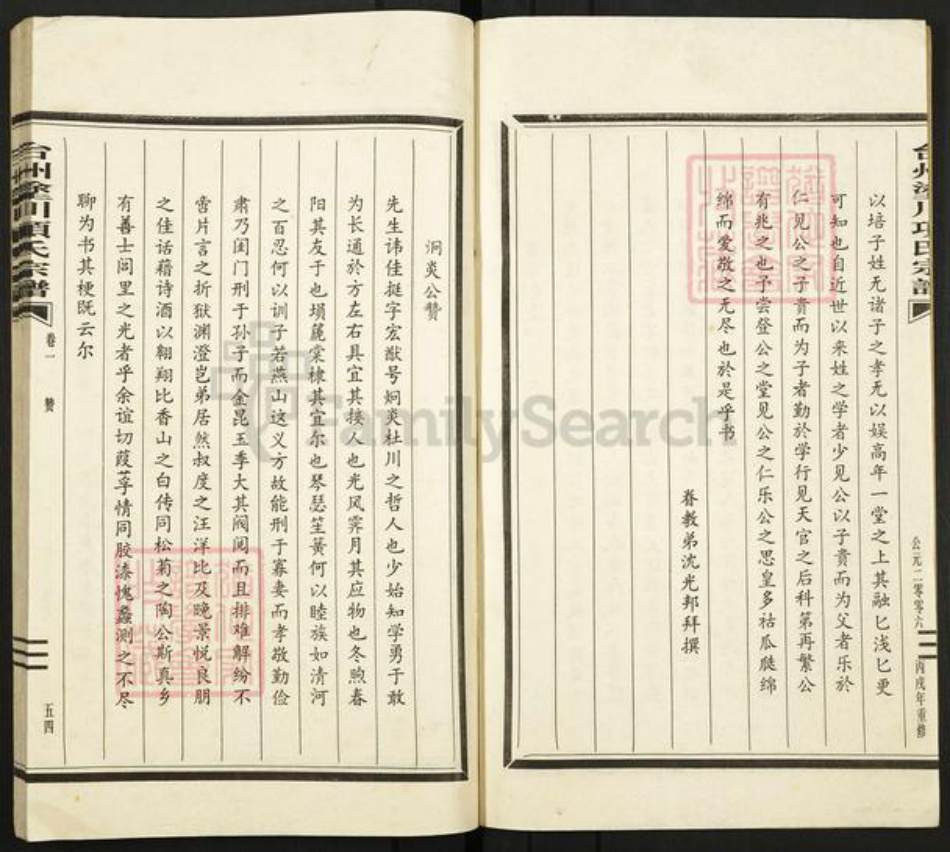 台州塗川項氏宗譜
公元二零零六
丙戌年重修
以培子姓无诸子之孝无以娱高年一堂之上其融匕浅匕更
可知也自近世以来姓之学者少见公以子贵而为父者乐於
仁见公之子贵而为子者勤於学行见天官之后科第再繁公
有兆之也予尝登公之堂见公之仁乐公之思皇多祜瓜瓞绵
绵而爱敬之无尽也於是乎书
眷教弟沈光邦拜撰
泂炎公赞
先生讳佳挺字宏猷号炯炎杜川之哲人也少始知学勇于敢
为长通於方左右具宜其接人也光风霁月其应物也冬煦春
阳其友于也埙篪棠棣其宜尔也琴瑟笙簧何以睦族如清河
之百忍何以训子若燕山这义方故能刑于寡妻而孝敬勤俭
肃乃闺门刑于孙子而金昆玉季大其阀阅而且排难解纷不
啻片言之折狱渊澄岂弟居然叔度之汪洋比及晚景悦良朋
之佳话藉诗酒以翱翔比香山之白传同松菊之陶公斯真乡
有善士闾里之光者乎余谊切葭莩情同胶漆愧蠡测之不尽
聊为书其梗既云尔
台州塗川項氏宗譜
卷一
赞
五四
FamilySearch